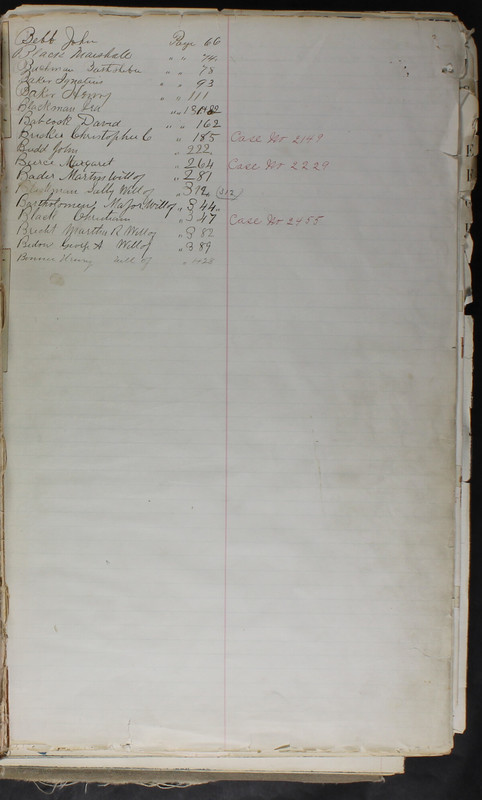 Bebb John Page 66
Blacis Marshall " " 74
Bushman " " 78
Baker Ignatius " " 93
Baker Henry " " 111
Blackman Ira " "
Babcock David " " 162
Brisker Christopher C " 185 Case No 2149
Budd John " 222
Bierce Margaret " 264 Case No 2229
Bader Martin Will of " 281
Blackman Sally Will of " 312 (212)
Bartholomew Major Will of " 344
Black Christian " 347 Case No 2455
Brecht Martha R Will of " 382
Bidow Geo A Will of " 389
Bonner Henry Will of " 428
E